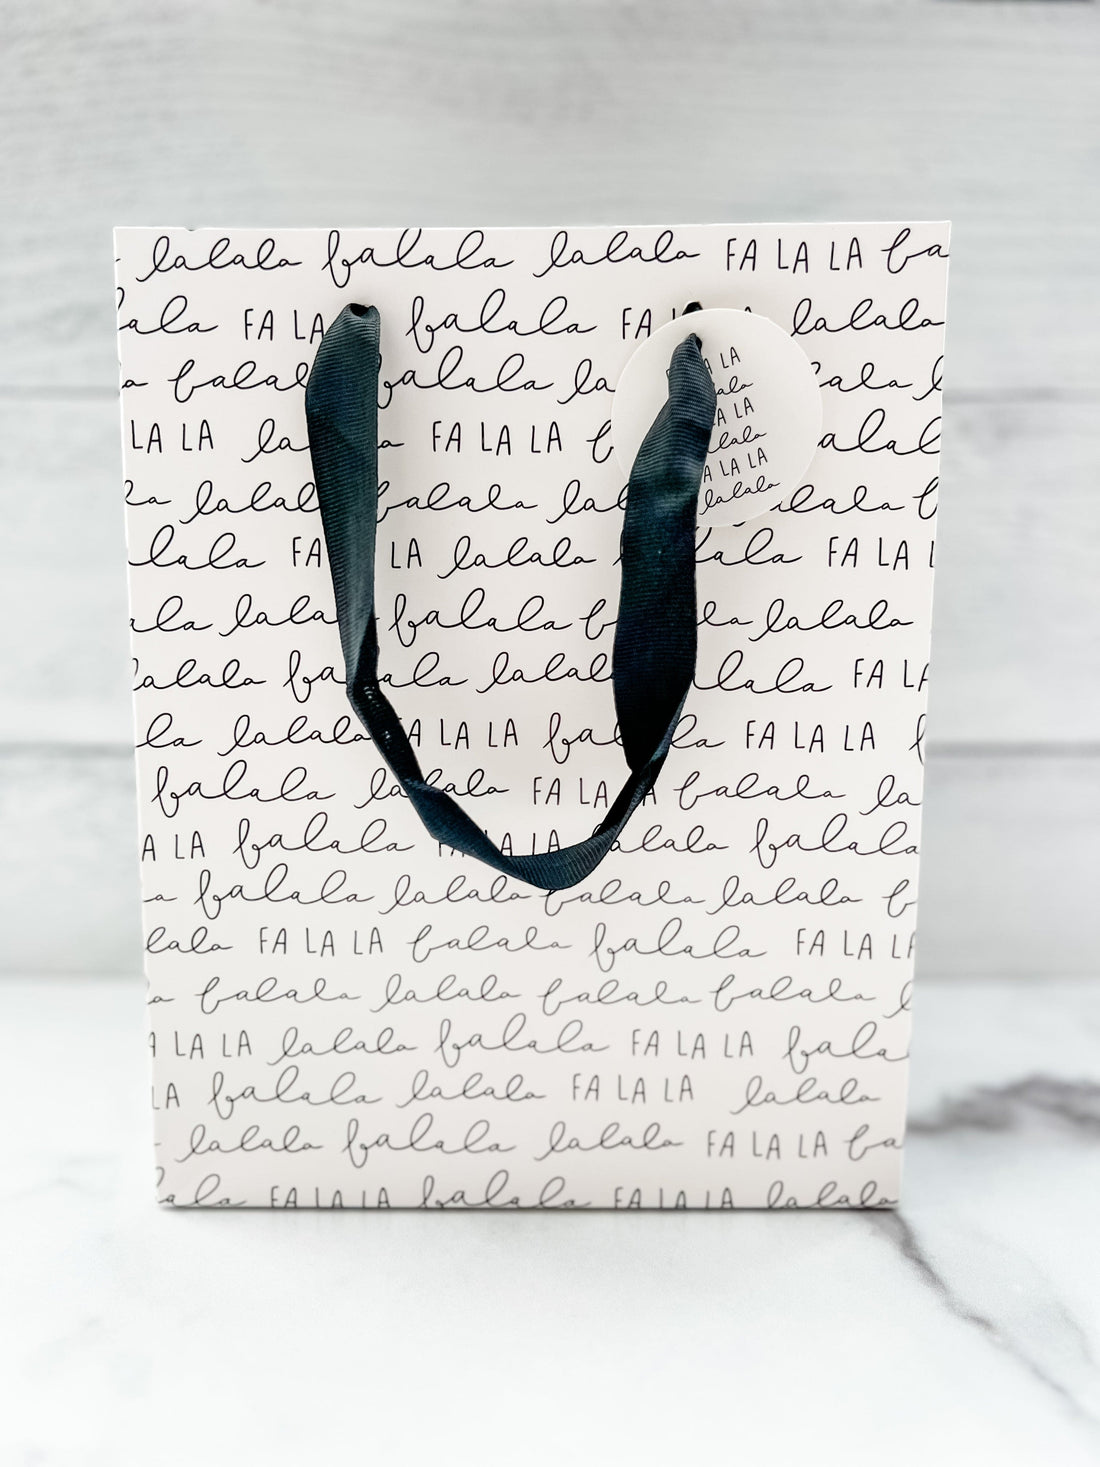 lalala falalala lalala FA LA LA fa
ala FA LA falalala FA L lalala
a falalal alalala la ala
LA LA la a FA LA LA f alal
la lalal falalala lal lalala f
lala FA LA lalala lala FA LA L
ala lalala falalala f la lalala
alalala fa ala lalala lalala FA LA
la lalala A LA LA fal la FA LA LA f
falalala la lala FA LA A falalala la
A LA falalala FA LA LA lalala falala
a falalala lalala falalala lalala f
lala FA LA LA falalala falalala FA LA LA
a falalala lalala falalala falalala l
A LA LA lalala falalala FA LA LA fala
LA falalala lalala FA LA LA lalala
lalala falalala lalala FA LA LA fa
ala FA LA LA falalala FA LA LA lalala
A LA
ala
LA LA
lala
A LA LA
lalala